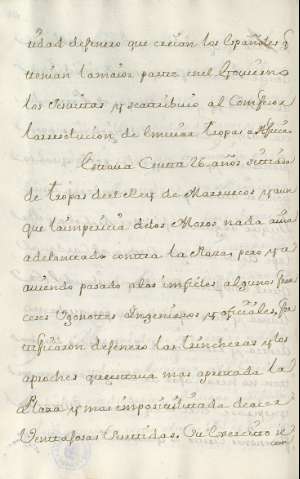 udad de fuero que creian los Españoles q
tenian la maior parte en el Govierno
los Jesuitas y se atribuio al Confesor
la resolucion de embiar tropas a Africa.
Estava Ceuta 26 años sitiada
de tropas del Rey de Marruecos y aun
que la impericia de los Moros nada avia
adelantado contra la Plaza, pero ya
aviendo pasado a los infieles algunos fran
ceses Ugonotes Ingenieros y oficiales,
de fuero las trincheras y los
aproches que estava mas apretada la
Plaza y mas imposivilitada de acer
Ventajosas Salidas. Un Exercito de